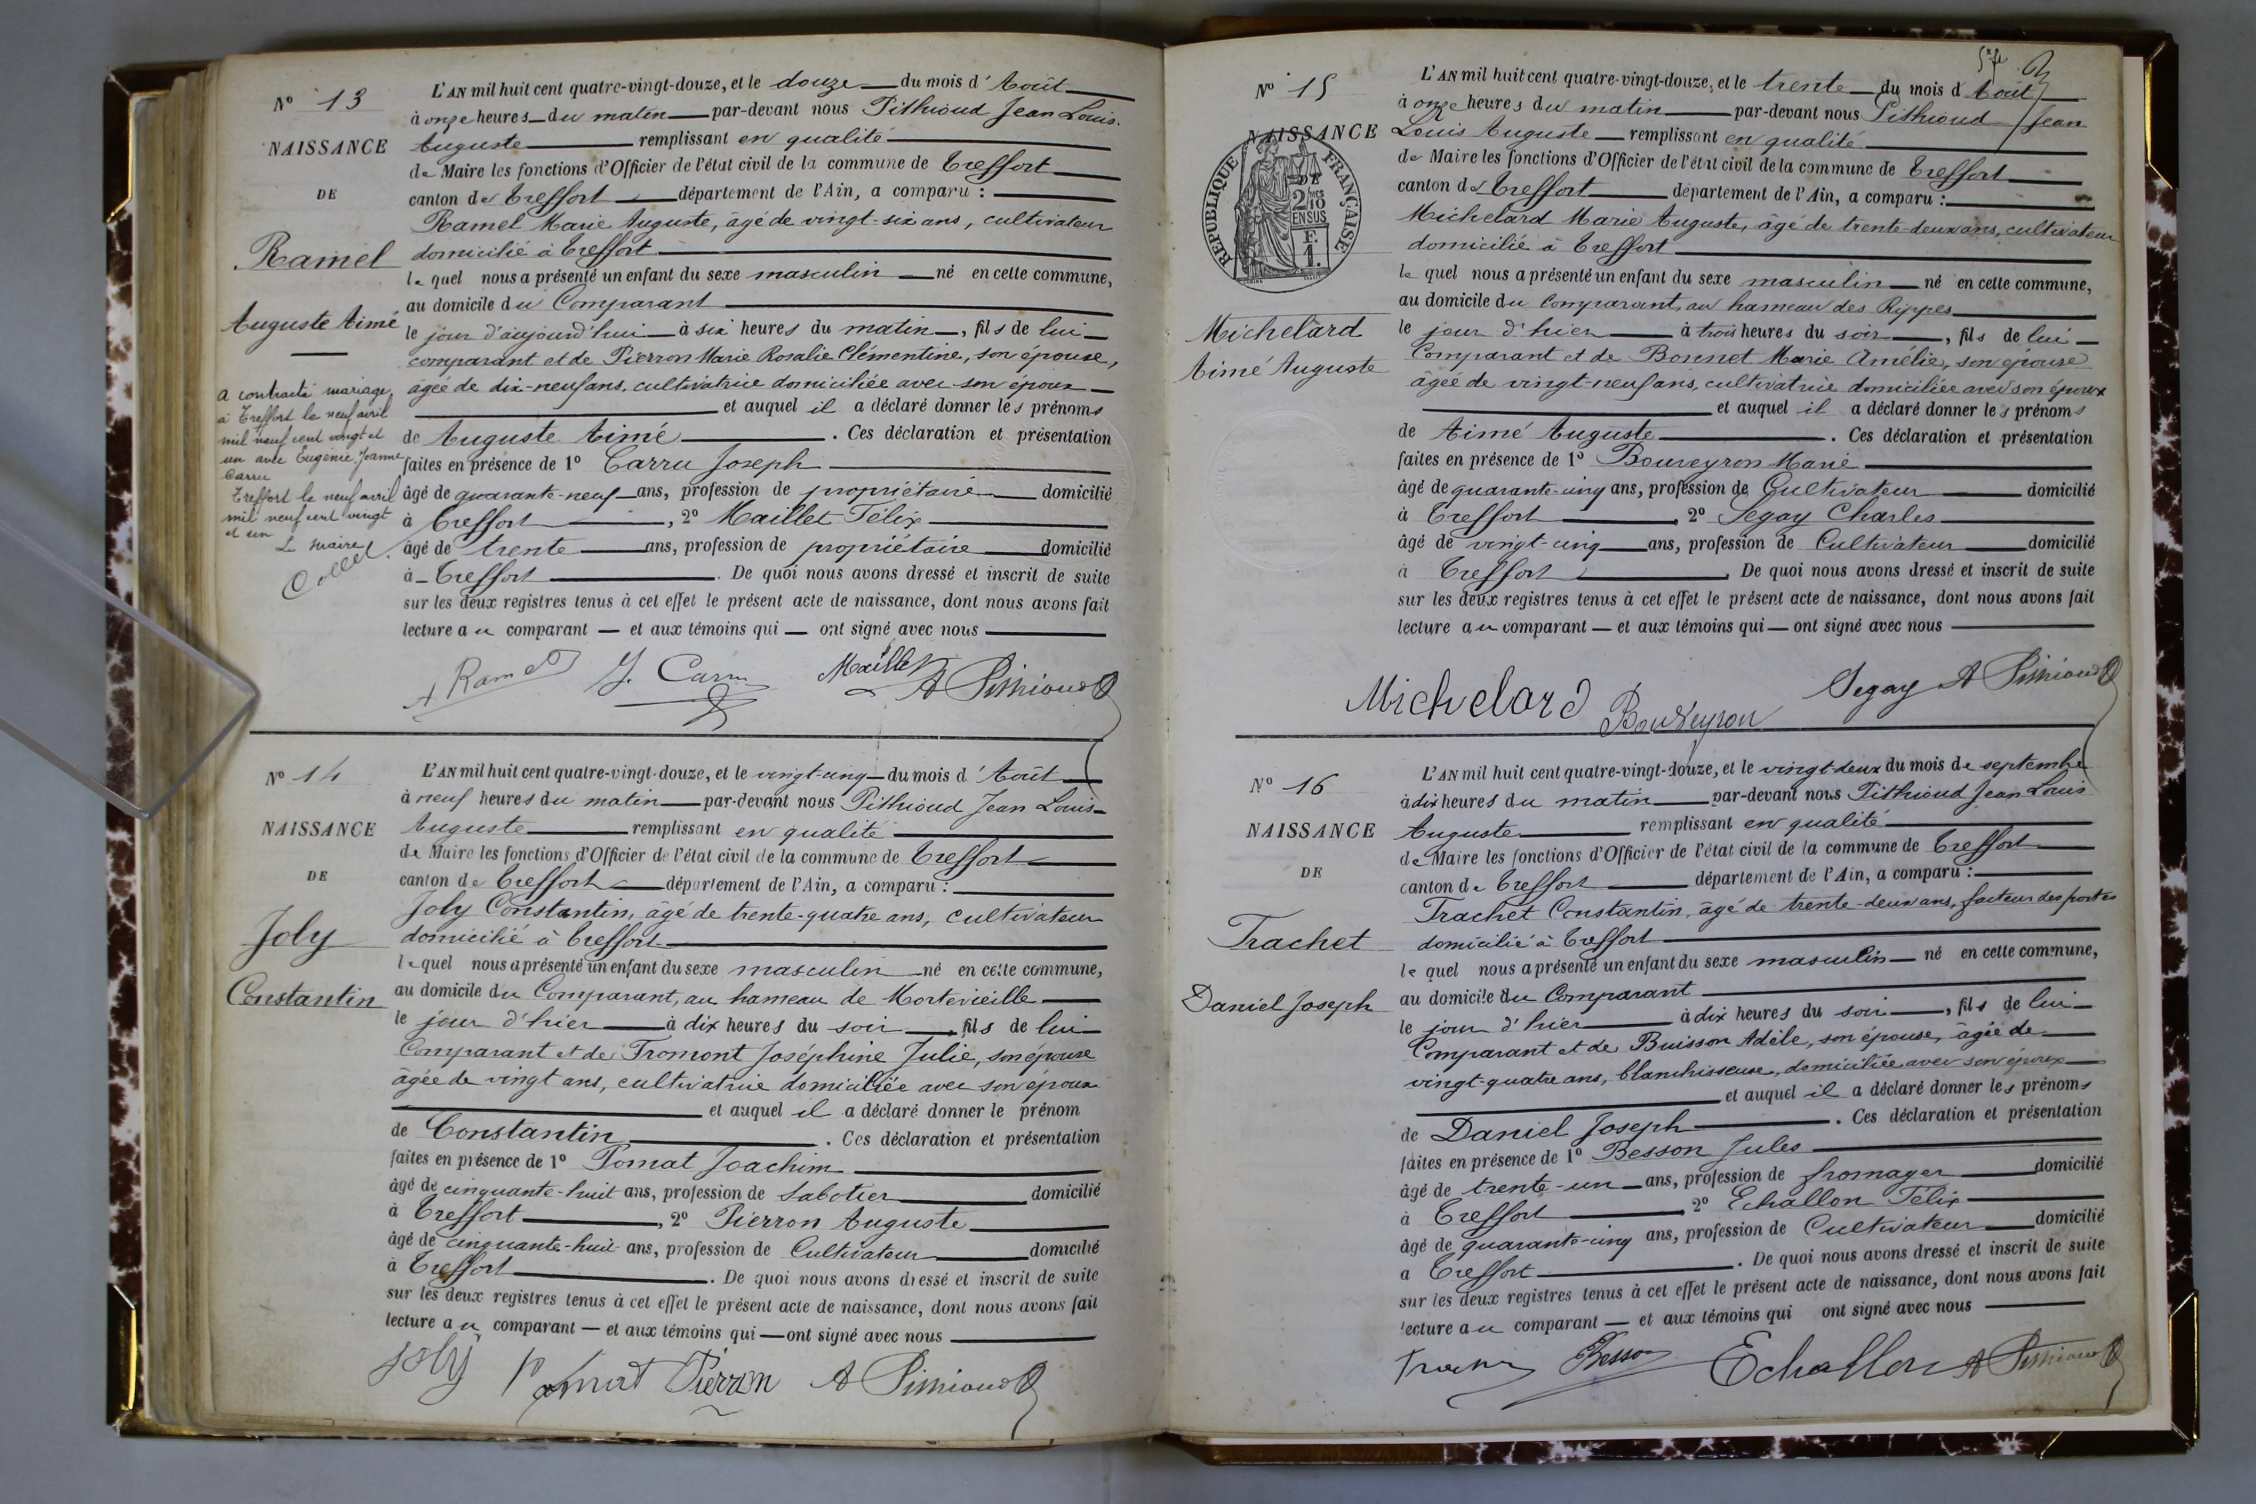 N° 13
NAISSANCE
DE
Ramel
Auguste Aimé
a contracté mariage
à Treffort le neuf avril
mil neuf cent vingt et
un avec Eugénie Jeanne
Carru
Treffort le neuf avril
mil neuf cent vingt
et un
Le Maire
L'AN mil huit cent quatre-vingt-douze, et le douze du mois d'Août
à onze heures du matin par-devant nous Pithioud Jean Louis
Auguste remplissant en qualité
de Maire les fonctions d'Officier de l'état civil de la commune de Treffort
canton de Treffort département de l'Ain, a comparu :
Ramel Marie Auguste, âgé de vingt-six ans, cultivateur
domicilié à Treffort
lequel nous a présenté un enfant du sexe masculin né en cette commune,
au domicile du Comparant
le jour d'aujourd'hui à six heures du matin, fils de lui
comparant et de Pierron Marie Rosalie Clémentine, son épouse,
âgée de dix-neuf ans, cultivatrice domiciliée avec son époux
et auquel il a déclaré donner les prénoms
de Auguste Aimé. Ces déclaration et présentation
faites en présence de 1° Carru Joseph
âgé de quarante-neuf ans, profession de propriétaire domicilié
à Treffort, 2° Maillet Félix
âgé de trente ans, profession de propriétaire domicilié
à Treffort. De quoi nous avons dressé et inscrit de suite
sur les deux registres tenus à cet effet le présent acte de naissance, dont nous avons fait
lecture au comparant — et aux témoins qui — ont signé avec nous
Ramel J. Carru Maillet A Pithioud
N° 14
NAISSANCE
DE
Joly
Constantin
L'AN mil huit cent quatre-vingt-douze, et le vingt-cinq du mois d'Août
à neuf heures du matin par-devant nous Pithioud Jean Louis
Auguste remplissant en qualité
de Maire les fonctions d'Officier de l'état civil de la commune de Treffort
canton de Treffort département de l'Ain, a comparu :
Joly Constantin, âgé de trente-quatre ans, cultivateur
domicilié à Treffort
lequel nous a présenté un enfant du sexe masculin né en cette commune,
au domicile du Comparant, au hameau de Mortevieille
le jour d'hier à dix heures du soir, fils de lui
Comparant et de Fromont Joséphine Julie, son épouse
âgée de vingt ans, cultivatrice domiciliée avec son époux
et auquel il a déclaré donner le prénom
de Constantin. Ces déclaration et présentation
faites en présence de 1° Pomat Joachim
âgé de cinquante-huit ans, profession de Sabotier domicilié
à Treffort, 2° Pierron Auguste
âgé de cinquante-huit ans, profession de Cultivateur domicilié
à Treffort. De quoi nous avons dressé et inscrit de suite
sur les deux registres tenus à cet effet le présent acte de naissance, dont nous avons fait
lecture au comparant — et aux témoins qui — ont signé avec nous
Joly Pomat Pierron A Pithioud
N° 15
NAISSANCE
DE
RÉPUBLIQUE FRANÇAISE
2/10
EN SUS
Michelard
Aimé Auguste
L'AN mil huit cent quatre-vingt-douze, et le trente du mois d'Août
à onze heures du matin par-devant nous Pithioud Jean
Louis Auguste remplissant en qualité
de Maire les fonctions d'Officier de l'état civil de la commune de Treffort
canton de Treffort département de l'Ain, a comparu :
Michelard Marie Auguste, âgé de trente-deux ans, cultivateur
domicilié à Treffort
lequel nous a présenté un enfant du sexe masculin né en cette commune,
au domicile du Comparant, au hameau des Rippes
le jour d'hier à trois heures du soir, fils de lui
Comparant et de Bonnet Marie Amélie, son épouse
âgée de vingt-neuf ans, cultivatrice domiciliée avec son époux
et auquel il a déclaré donner les prénoms
de Aimé Auguste. Ces déclaration et présentation
faites en présence de 1° Bouveyron Marie
âgé de quarante-cinq ans, profession de Cultivateur domicilié
à Treffort, 2° Segay Charles
âgé de vingt-cinq ans, profession de Cultivateur domicilié
à Treffort. De quoi nous avons dressé et inscrit de suite
sur les deux registres tenus à cet effet le présent acte de naissance, dont nous avons fait
lecture au comparant — et aux témoins qui — ont signé avec nous
Michelard Bouveyron Segay A Pithioud
N° 16
NAISSANCE
DE
Trachet
Daniel Joseph
L'AN mil huit cent quatre-vingt-douze, et le vingt-deux du mois de septembre
à dix heures du matin par-devant nous Pithioud Jean Louis
Auguste remplissant en qualité
de Maire les fonctions d'Officier de l'état civil de la commune de Treffort
canton de Treffort département de l'Ain, a comparu :
Trachet Constantin, âgé de trente-deux ans, facteur des postes
domicilié à Treffort
lequel nous a présenté un enfant du sexe masculin né en cette commune,
au domicile du Comparant
le jour d'hier à dix heures du soir, fils de lui
Comparant et de Buisson Adèle, son épouse, âgée de
vingt-quatre ans, blanchisseuse, domiciliée avec son époux
et auquel il a déclaré donner les prénoms
de Daniel Joseph. Ces déclaration et présentation
faites en présence de 1° Besson Jules
âgé de trente-un ans, profession de fromager domicilié
à Treffort 2° Echallon Félix
âgé de quarante-cinq ans, profession de Cultivateur domicilié
à Treffort. De quoi nous avons dressé et inscrit de suite
sur les deux registres tenus à cet effet le présent acte de naissance, dont nous avons fait
lecture au comparant — et aux témoins qui ont signé avec nous
Besson Echallon A Pithioud